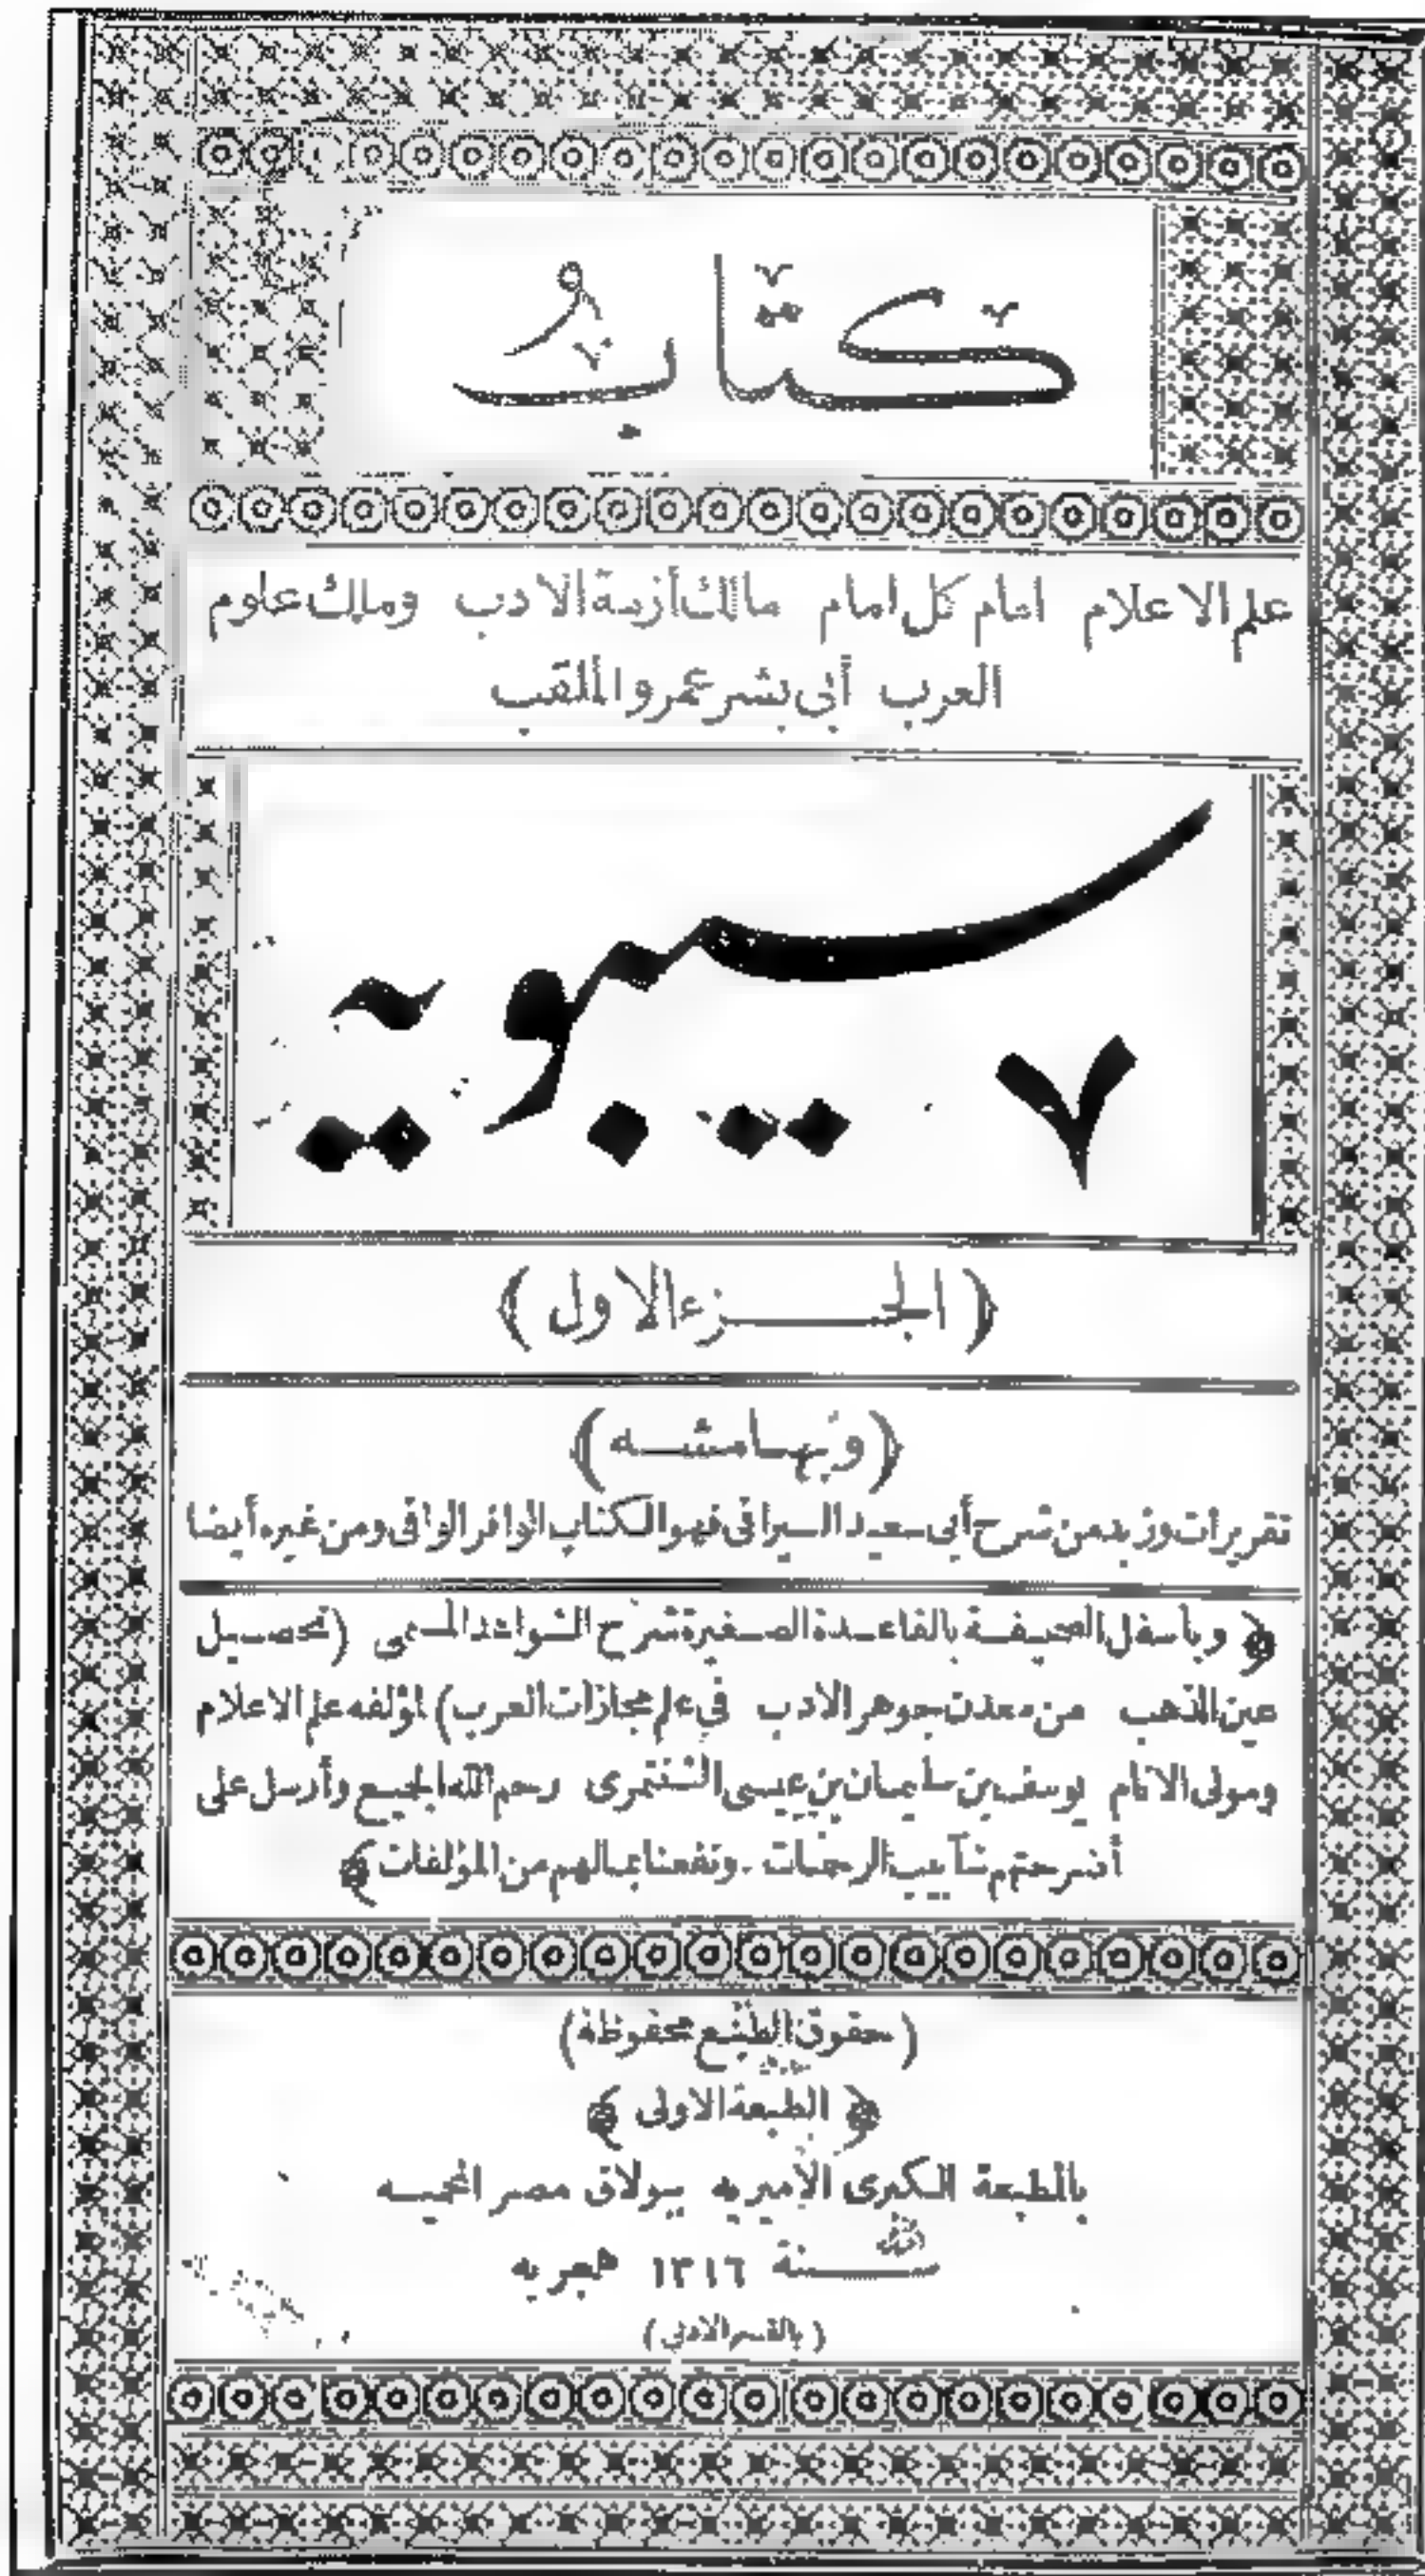 كتابُ
علم الاعلام امام كل امام مالك أزمة الادب وملك علوم
العرب أبى بشر عمرو الملقب
سيبويه
(الجزء الاول)
(وبهامشه)
تقريرات وزبد من شرح أبى سعيد السيرافى فهو الكتاب الوافر الوافى ومن غيره أيضا
﴿ وبأسفل الصحيفة بالقاعدة الصغيرة شرح الشواهد المسمى (تحصيل
عين الذهب من معدن جوهر الادب في علم مجازات العرب) لمؤلفه علم الاعلام
ومولى الانام يوسف بن سليمان بن عيسى الشنتمرى رحم الله الجميع وأرسل على
أضرحتهم شآبيب الرحمات . ونفعنا بمالهم من المؤلفات ﴾
(حقوق الطبع محفوظة)
﴿ الطبعة الاولى ﴾
بالمطبعة الكبرى الأميريه ببولاق مصر المحميه
سنة ١٣١٦ هجريه
(بالقسم الادبى)